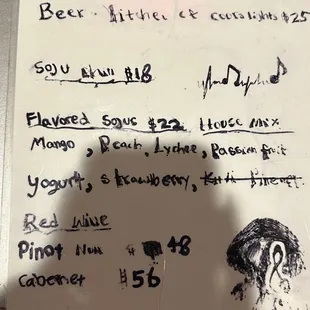 Beer Pitcher of coorslights $25
Soju $18
Flavored Sojus $22 House mix
Mango, Peach, Lychee, Passion fruit
Yogurt, strawberry,
Red Wine
Pinot $48
Cabernet $56